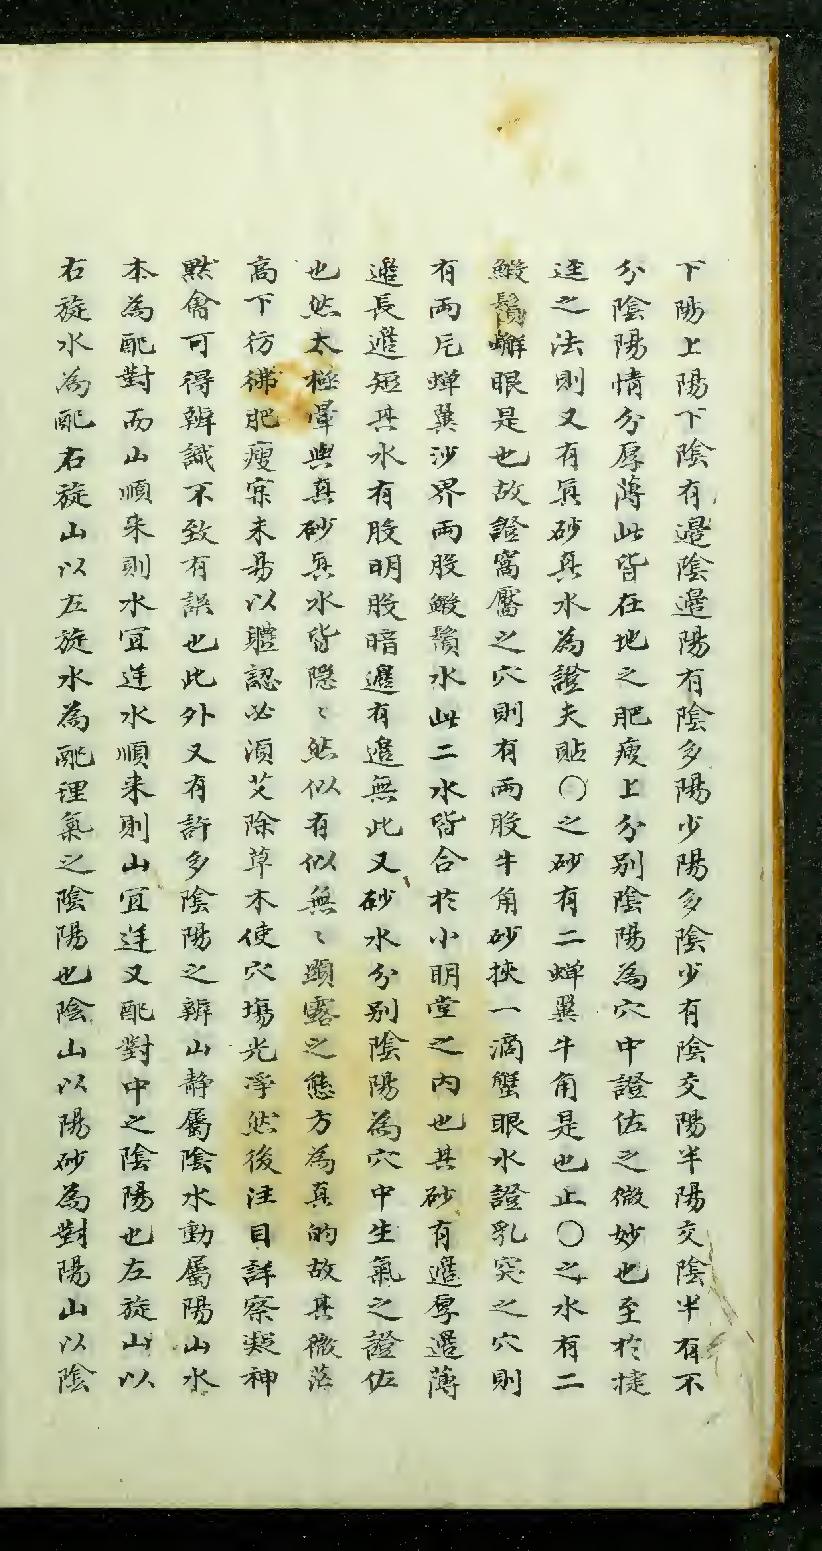 下陽上陽下陰有邉陰邉陽有陰多陽少陽多陰少有陰交陽半陽交陰半有不
分陰陽情分厚薄此皆在地之肥瘦上分別陰陽為穴中證佐之微妙也至於捷
逕之法則又有真砂真水為證夫貼〇之砂有二蟬翼牛角是也止〇之水有二
鰕鬚蠏眼是也故證窩靨之穴則有兩股牛角砂挾一滴蟹眼水證乳突之穴則
有兩片蟬翼沙界兩股鰕鬚水此二水皆合於小明堂之内也其砂有邉厚邉薄
邉長邉短其水有股明股暗邉有邉無此又砂水分别陰陽為穴中生氣之證佐
也然太極暈與真砂真水皆隱〻然似有似無〻顯露之態方為真的故其微茫
高下彷彿肥瘦寔未易以軆認必湏艾除草木使穴塲光凈然後注目詳察凝神
默會可得辨識不致有誤也此外又有許多陰陽之辨山静屬陰水動屬陽山水
本為配對而山順来則水宜逆水順来則山宜逆又配對中之陰陽也左旋山以
右旋水為配右旋山以左旋水為配理氣之陰陽也陰山以陽砂為對陽山以陰